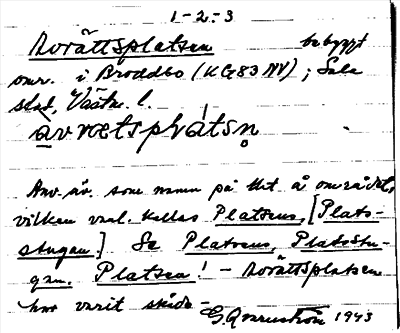 1-2-3
Avrättsplatsen bebyggt
omr. i Broddbo (KG83 NV); Sala
stad, Västm. l.
avrætsplatsn
Anv. äv. som namn på litet å området,
vilken vanl. kallas Platsens, [Plats-
stugan.] Se Platsens, Platsstu-
gan. Platsen! - Avrättsplatsen
har varit skåde-
1943